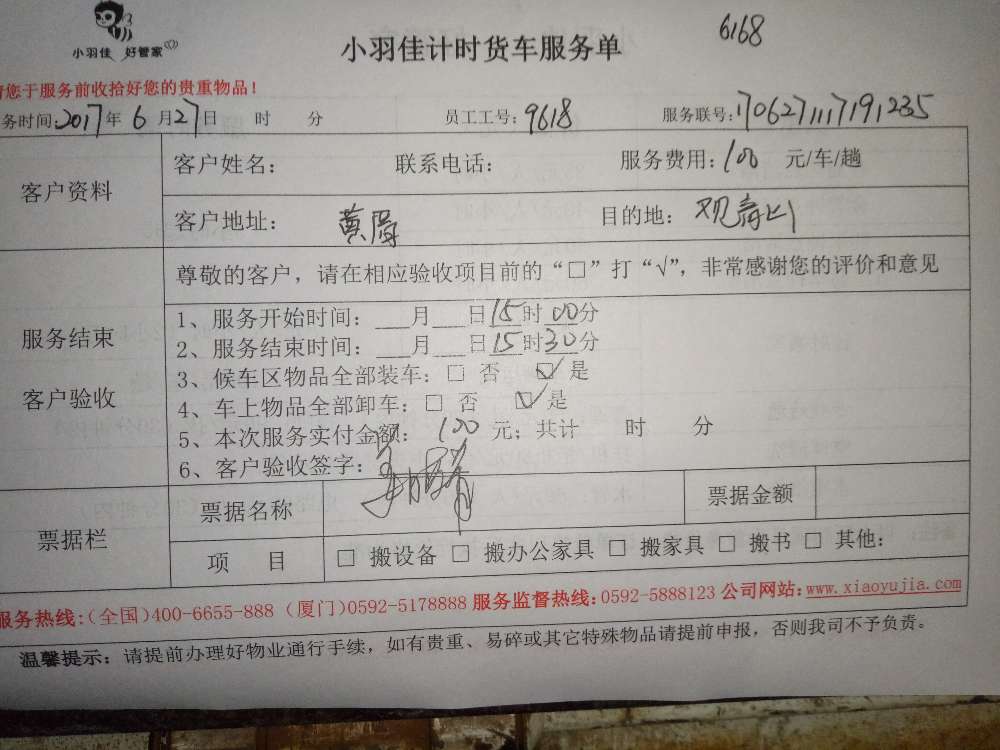 小羽佳 好管家
小羽佳计时货车服务单
6168
您于服务前收拾好您的贵重物品！
务时间:2017年6月27日 时 分 员工工号:9618 服务联号:170627111719 1235
客户资料
客户姓名: 联系电话: 服务费用:100 元/车/趟
客户地址: 黄厝 目的地: 观音山
尊敬的客户，请在相应验收项目前的“□”打“√”，非常感谢您的评价和意见
服务结束
客户验收
1、服务开始时间：___月___日15时00分
2、服务结束时间：___月___日15时30分
3、候车区物品全部装车：□ 否 ☑ 是
4、车上物品全部卸车：□ 否 ☑ 是
5、本次服务实付金额： 100 元；共计 时 分
6、客户验收签字：
票据栏
票据名称 票据金额
项 目 □ 搬设备 □ 搬办公家具 □ 搬家具 □ 搬书 □ 其他：
服务热线:(全国)400-6655-888 (厦门)0592-5178888 服务监督热线:0592-5888123 公司网站:www.xiaoyujia.com
温馨提示：请提前办理好物业通行手续，如有贵重、易碎或其它特殊物品请提前申报，否则我司不予负责。